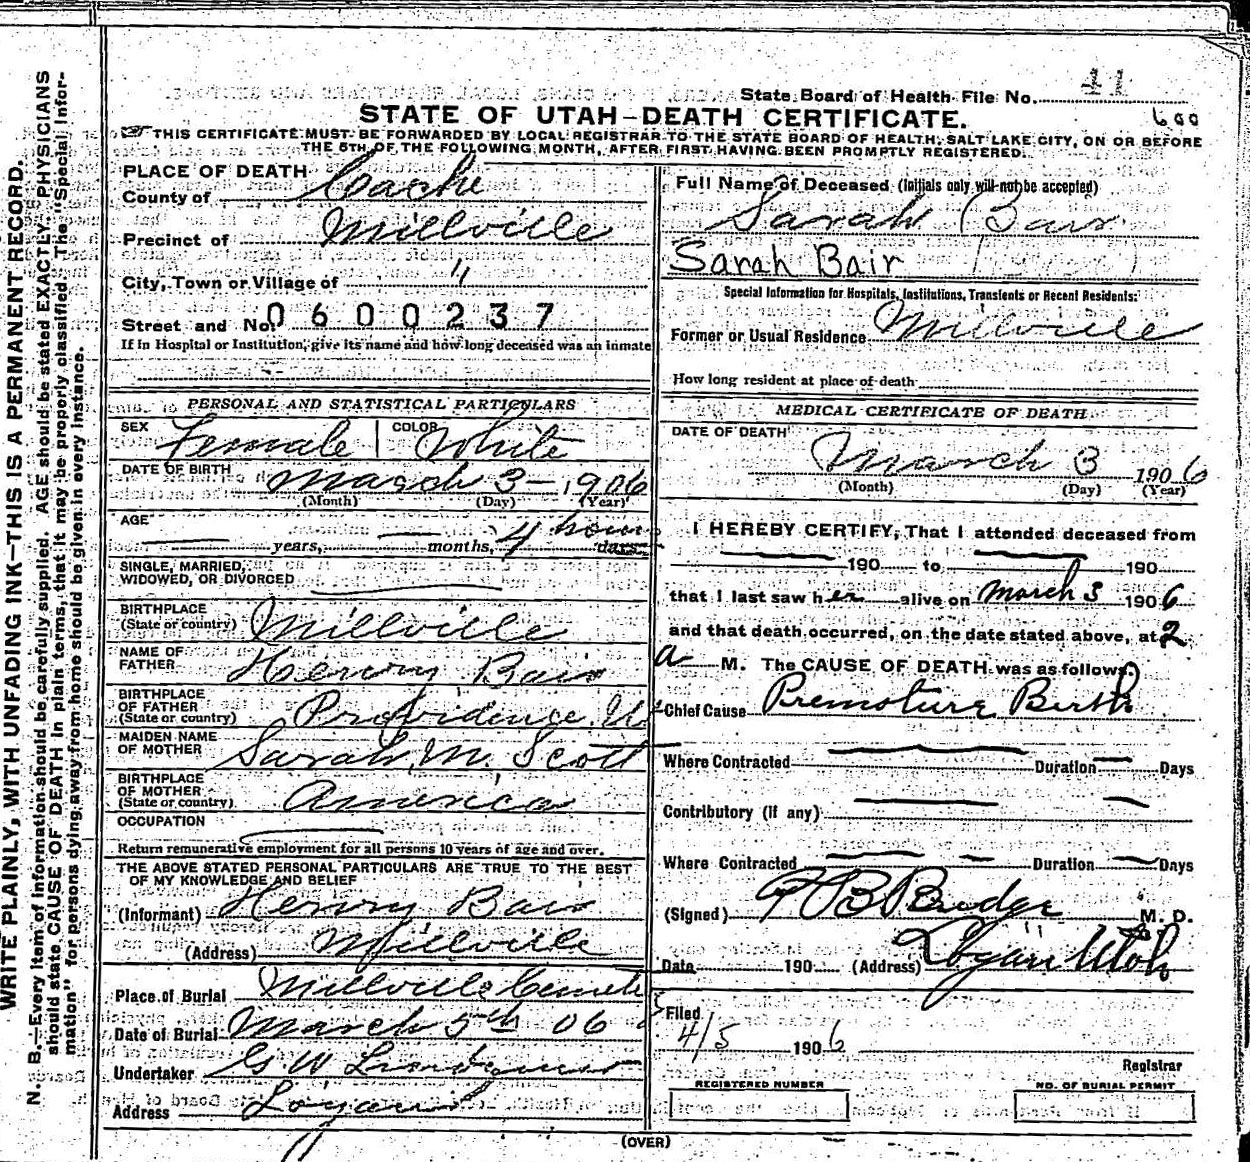 State Board of Health File No. 41
STATE OF UTAH—DEATH CERTIFICATE.
600
THIS CERTIFICATE MUST BE FORWARDED BY LOCAL REGISTRAR TO THE STATE BOARD OF HEALTH, SALT LAKE CITY, ON OR BEFORE
THE 5TH OF THE FOLLOWING MONTH, AFTER FIRST HAVING BEEN PROMPTLY REGISTERED.
WRITE PLAINLY, WITH UNFADING INK—THIS IS A PERMANENT RECORD.
N. B.—Every item of information should be carefully supplied. AGE should be stated EXACTLY. PHYSICIANS
should state CAUSE OF DEATH in plain terms, that it may be properly classified. The "Special Infor-
mation" for persons dying away from home should be given in every instance.
PLACE OF DEATH
County of Cache
Precinct of Millville
City, Town or Village of "
Street and No. 0600237
If in Hospital or Institution, give its name and how long deceased was an inmate
PERSONAL AND STATISTICAL PARTICULARS
SEX Female COLOR White
DATE OF BIRTH March 3 - 1906
(Month) (Day) (Year)
AGE
years, months, 4 hours days
SINGLE, MARRIED,
WIDOWED, OR DIVORCED
BIRTHPLACE
(State or country) Millville
NAME OF
FATHER Henry Bair
BIRTHPLACE
OF FATHER
(State or country) Providence, U
MAIDEN NAME
OF MOTHER Sarah M. Scott
BIRTHPLACE
OF MOTHER
(State or country) America
OCCUPATION
Return remunerative employment for all persons 10 years of age and over.
THE ABOVE STATED PERSONAL PARTICULARS ARE TRUE TO THE BEST
OF MY KNOWLEDGE AND BELIEF
(Informant) Henry Bair
(Address) Millville
Place of Burial Millville Cemete
Date of Burial March 5th 06
Undertaker G W
Address Logan
Full Name of Deceased (Initials only will not be accepted)
Sarah Bair
Sarah Bair
Special Information for Hospitals, Institutions, Transients or Recent Residents:
Former or Usual Residence Millville
How long resident at place of death
MEDICAL CERTIFICATE OF DEATH
DATE OF DEATH
March 3 1906
(Month) (Day) (Year)
I HEREBY CERTIFY, That I attended deceased from
190 to 190
that I last saw her alive on March 3 1906
and that death occurred, on the date stated above, at 2
a M. The CAUSE OF DEATH was as follows:
Chief Cause Premature Birth
Where Contracted Duration Days
Contributory (if any)
Where Contracted Duration Days
(Signed) B Budge M. D.
Date 190 (Address) Logan Utah
Filed
4/5 1906
Registrar
REGISTERED NUMBER
NO. OF BURIAL PERMIT
(OVER)